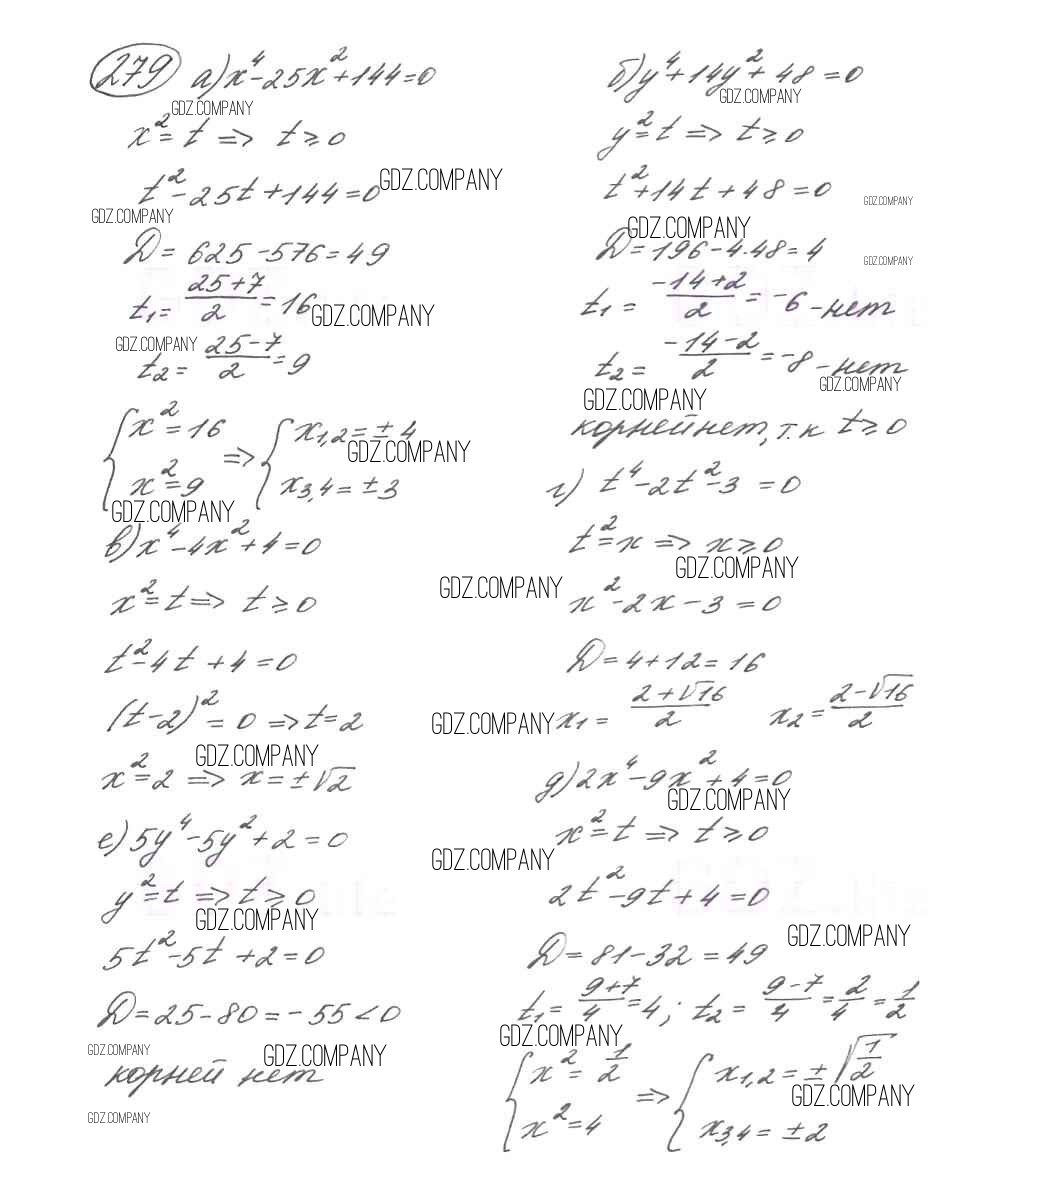 279 а) x⁴-25x²+144=0
GDZ.COMPANY
x²=t => t≥0
t²-25t+144=0 GDZ.COMPANY
GDZ.COMPANY
D=625-576=49
t₁=(25+7)/2=16 GDZ.COMPANY
GDZ.COMPANY
t₂=(25-7)/2=9
{x²=16 => {x₁,₂=±4
GDZ.COMPANY
{x²=9 {x₃,₄=±3
GDZ.COMPANY
в) x⁴-4x²+4=0
x²=t => t≥0
t²-4t+4=0
(t-2)²=0 => t=2
GDZ.COMPANY
x²=2 => x=±√2
е) 5y⁴-5y²+2=0
y²=t => t≥0
GDZ.COMPANY
5t²-5t+2=0
D=25-80=-55<0
GDZ.COMPANY GDZ.COMPANY
корней нет
GDZ.COMPANY
б) y⁴+14y²+48=0
GDZ.COMPANY
y²=t => t≥0
t²+14t+48=0
GDZ.COMPANY
GDZ.COMPANY
D=196-4.48=4
GDZ.COMPANY
t₁=(-14+2)/2=-6-нет
t₂=(-14-2)/2=-8-нет
GDZ.COMPANY
GDZ.COMPANY
корней нет, т.к t≥0
г) t⁴-2t²-3=0
t²=x => x≥0
GDZ.COMPANY
GDZ.COMPANY
x²-2x-3=0
D=4+12=16
GDZ.COMPANY x₁=(2+√16)/2 x₂=(2-√16)/2
д) 2x⁴-9x²+4=0
GDZ.COMPANY
x²=t => t≥0
GDZ.COMPANY
2t²-9t+4=0
GDZ.COMPANY
D=81-32=49
t₁=(9+7)/4=4; t₂=(9-7)/4=2/4=1/2
GDZ.COMPANY
{x²=1/2 => {x₁,₂=±√(1/2)
GDZ.COMPANY
{x²=4 {x₃,₄=±2